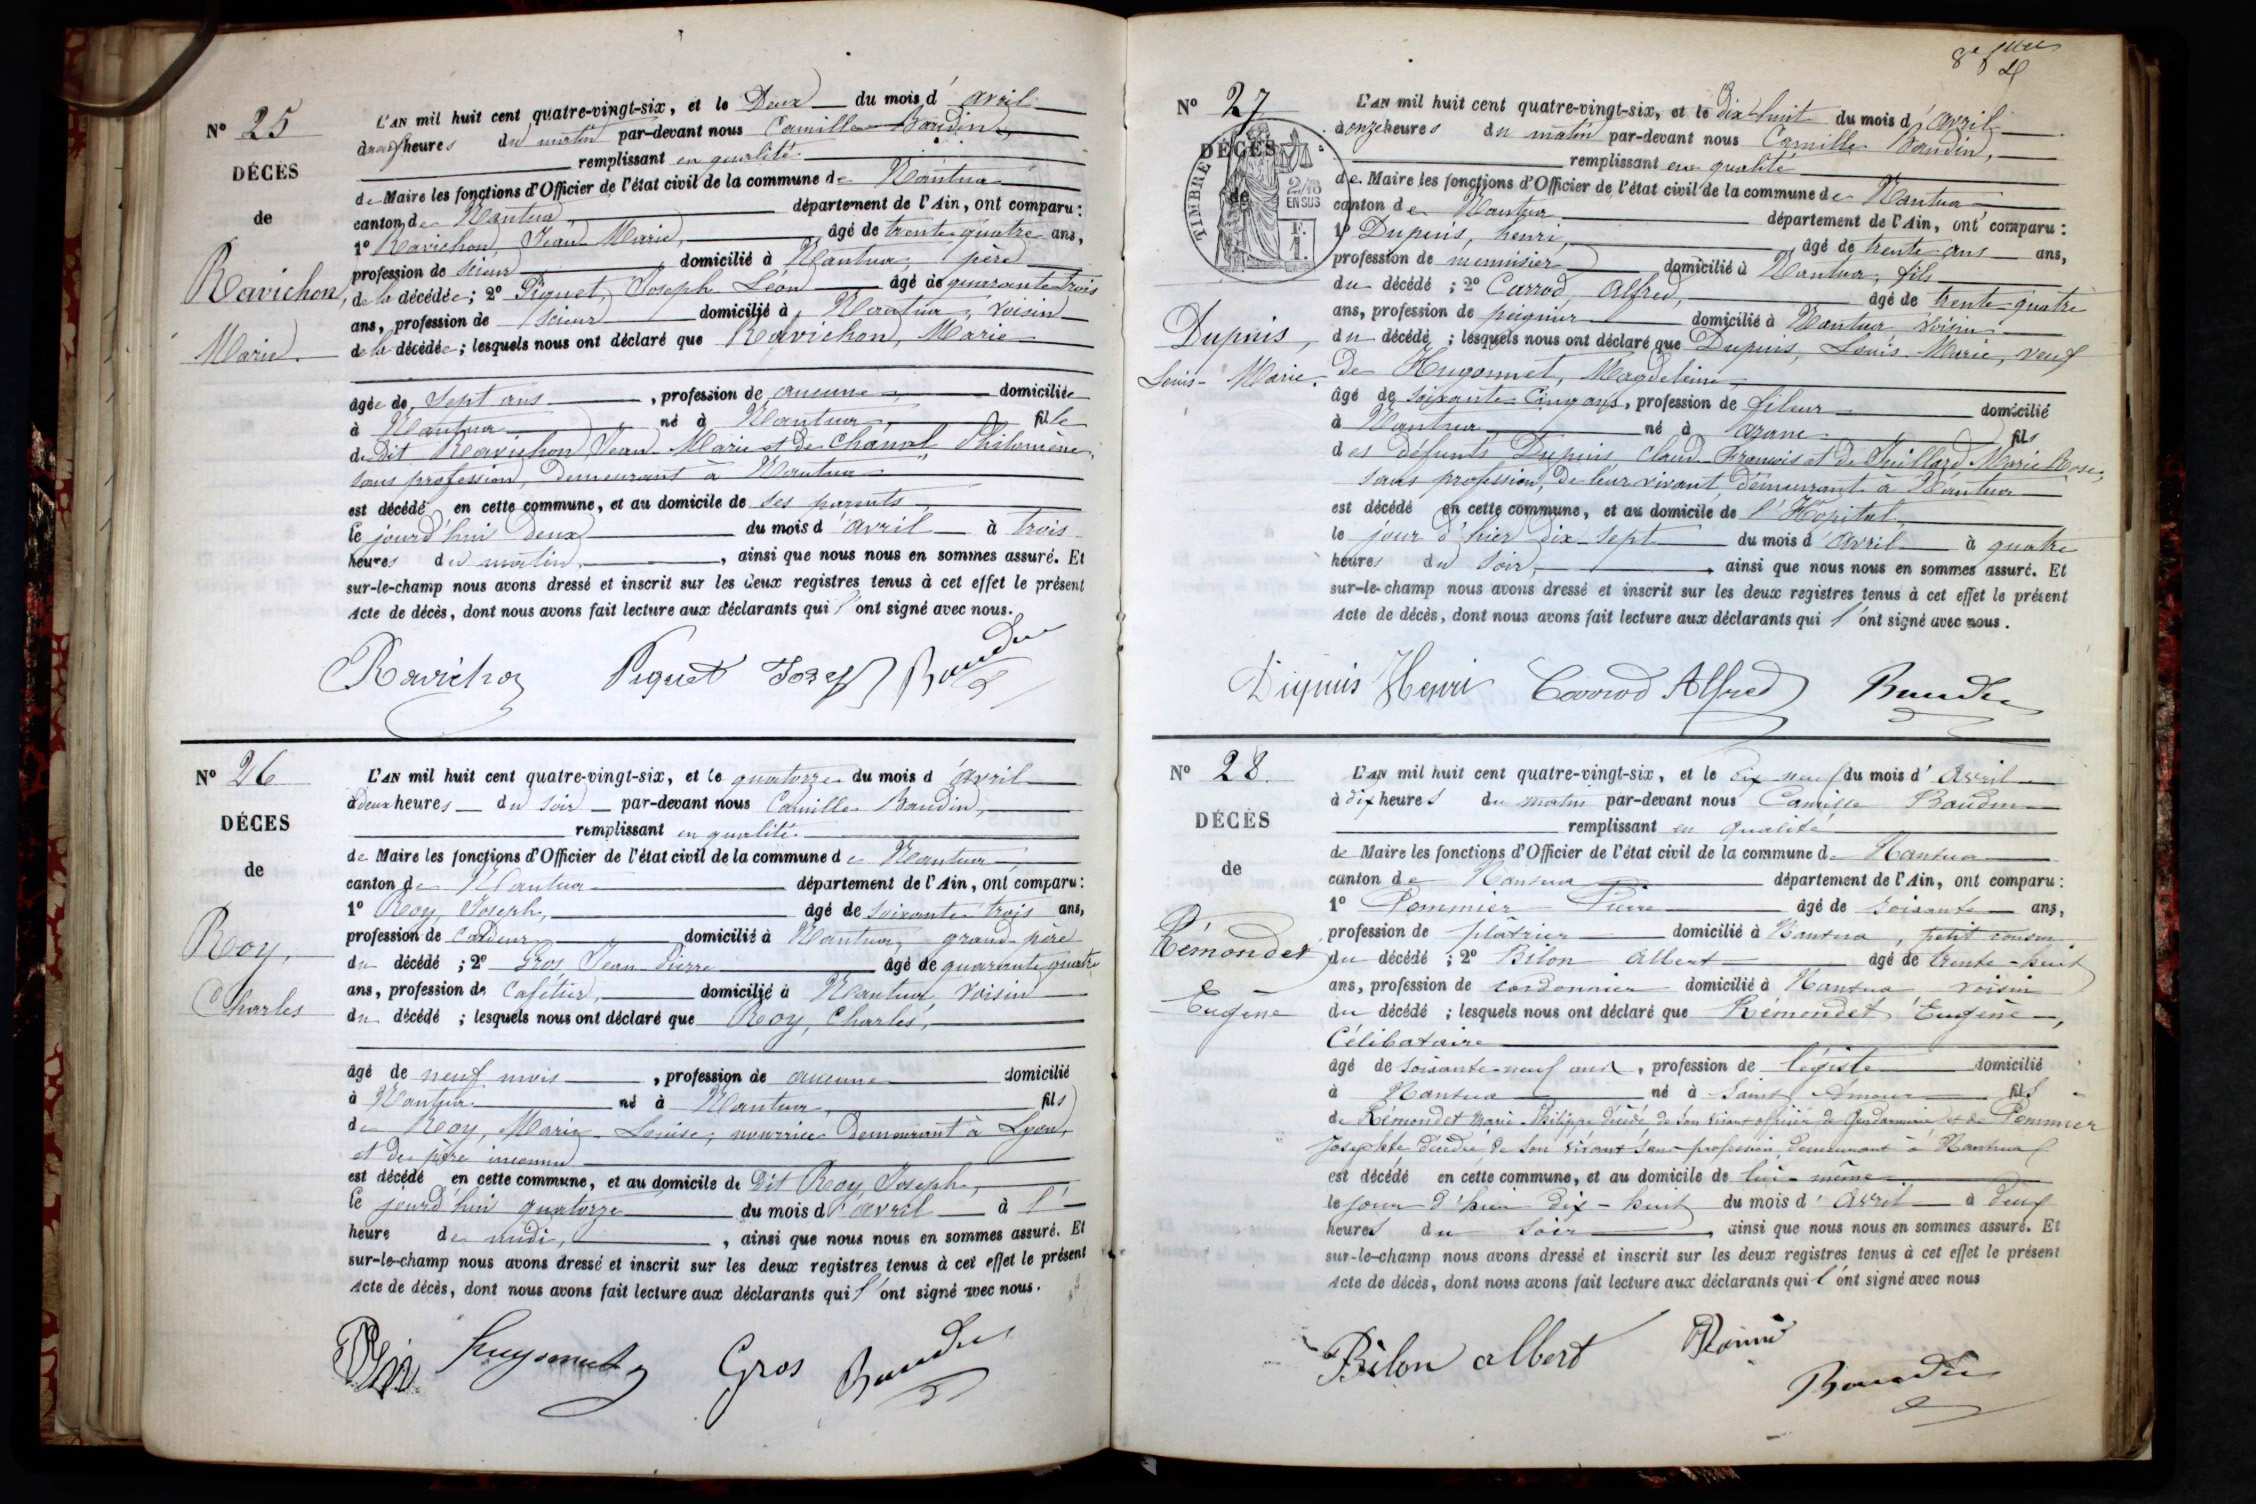 N° 25
DÉCÈS
de
Ravichon,
Marie.
L'AN mil huit cent quatre-vingt-six, et le Deux du mois d'avril
heures du matin par-devant nous Camille Baudin,
remplissant en qualité
de Maire les fonctions d'Officier de l'état civil de la commune de Nantua
canton de Nantua département de l'Ain, ont comparu:
1° Ravichon Jean Marie, âgé de trente quatre ans,
profession de scieur domicilié à Nantua, père
de la décédée; 2° Piquet, Joseph Léon âgé de quarante trois
ans, profession de scieur domicilié à Nantua, voisin
de la décédée; lesquels nous ont déclaré que Ravichon, Marie
âgée de sept ans, profession de aucune domiciliée
à Nantua né à Nantua fille
de dit Ravichon Jean Marie et de Chanal Philomène,
sans profession, demeurant à Nantua
est décédé en cette commune, et au domicile de ses parents
le jourd'hui Deux du mois d'avril à trois
heures du matin, ainsi que nous nous en sommes assuré. Et
sur-le-champ nous avons dressé et inscrit sur les deux registres tenus à cet effet le présent
Acte de décès, dont nous avons fait lecture aux déclarants qui l'ont signé avec nous.
Ravichon Piquet Josep Baudin
N° 26
DÉCÈS
de
Roy,
Charles
L'AN mil huit cent quatre-vingt-six, et le quatorze du mois d'avril
à deux heures du soir par-devant nous Camille Baudin,
remplissant en qualité
de Maire les fonctions d'Officier de l'état civil de la commune de Nantua
canton de Nantua département de l'Ain, ont comparu:
1° Roy, Joseph, âgé de soixante trois ans,
profession de cardeur domicilié à Nantua, grand-père
du décédé; 2° Gros Jean Pierre âgé de quarante quatre
ans, profession de cafetier, domicilié à Nantua, voisin
du décédé; lesquels nous ont déclaré que Roy, Charles,
âgé de neuf mois, profession de aucune domicilié
à Nantua né à Nantua, fils
de Roy, Marie-Louise, nourrice demeurant à Lyon,
et de père inconnu
est décédé en cette commune, et au domicile de dit Roy, Joseph,
le jourd'hui quatorze du mois d'avril à l'
heure de midi, ainsi que nous nous en sommes assuré. Et
sur-le-champ nous avons dressé et inscrit sur les deux registres tenus à cet effet le présent
Acte de décès, dont nous avons fait lecture aux déclarants qui l'ont signé avec nous.
Gros Baudin
N° 27
DÉCÈS
de
TIMBRE
2/10
EN SUS
F.
1.
Dupuis,
Louis-Marie.
L'AN mil huit cent quatre-vingt-six, et le dix-huit du mois d'avril
à onze heures du matin par-devant nous Camille Baudin,
remplissant en qualité
de Maire les fonctions d'Officier de l'état civil de la commune de Nantua
canton de Nantua département de l'Ain, ont comparu:
1° Dupuis, henri, âgé de trente ans ans,
profession de menuisier domicilié à Nantua, fils
du décédé; 2° Carrod, Alfred, âgé de trente quatre
ans, profession de peignier domicilié à Nantua voisin
du décédé; lesquels nous ont déclaré que Dupuis, Louis-Marie, veuf
de Hugonnet, Magdeleine,
âgé de soixante cinq ans, profession de fileur domicilié
à Nantua né à fils
des défunts Dupuis Claud-François et de Juillard Marie Rose,
sans profession, de leur vivant, demeurant à Nantua
est décédé en cette commune, et au domicile de l'Hôpital
le jour d'hier dix-sept du mois d'avril à quatre
heures du soir, ainsi que nous nous en sommes assuré. Et
sur-le-champ nous avons dressé et inscrit sur les deux registres tenus à cet effet le présent
Acte de décès, dont nous avons fait lecture aux déclarants qui l'ont signé avec nous.
Dupuis Henri Carrod Alfred Baudin
N° 28
DÉCÈS
de
Rémondet
Eugène
L'AN mil huit cent quatre-vingt-six, et le dix-neuf du mois d'Avril
à dix heures du matin par-devant nous Camille Baudin
remplissant en qualité
de Maire les fonctions d'Officier de l'état civil de la commune de Nantua
canton de Nantua département de l'Ain, ont comparu:
1° Pommier Pierre âgé de soixante ans,
profession de plâtrier domicilié à Nantua, petit cousin
du décédé; 2° Bilon Albert âgé de trente-huit
ans, profession de cordonnier domicilié à Nantua voisin
du décédé; lesquels nous ont déclaré que Rémondet Eugène,
Célibataire
âgé de soixante-neuf ans, profession de légiste domicilié
à Nantua né à Saint Amour fils
de Rémondet Marie Philippe décédé de son vivant officier de Gendarmerie et de Pommier
Josephte décédée de son vivant sans profession, demeurant à Nantua
est décédé en cette commune, et au domicile de lui-même
le jour d'hier dix-huit du mois d'Avril à deux
heures du soir, ainsi que nous nous en sommes assuré. Et
sur-le-champ nous avons dressé et inscrit sur les deux registres tenus à cet effet le présent
Acte de décès, dont nous avons fait lecture aux déclarants qui l'ont signé avec nous
Bilon albert Baudin